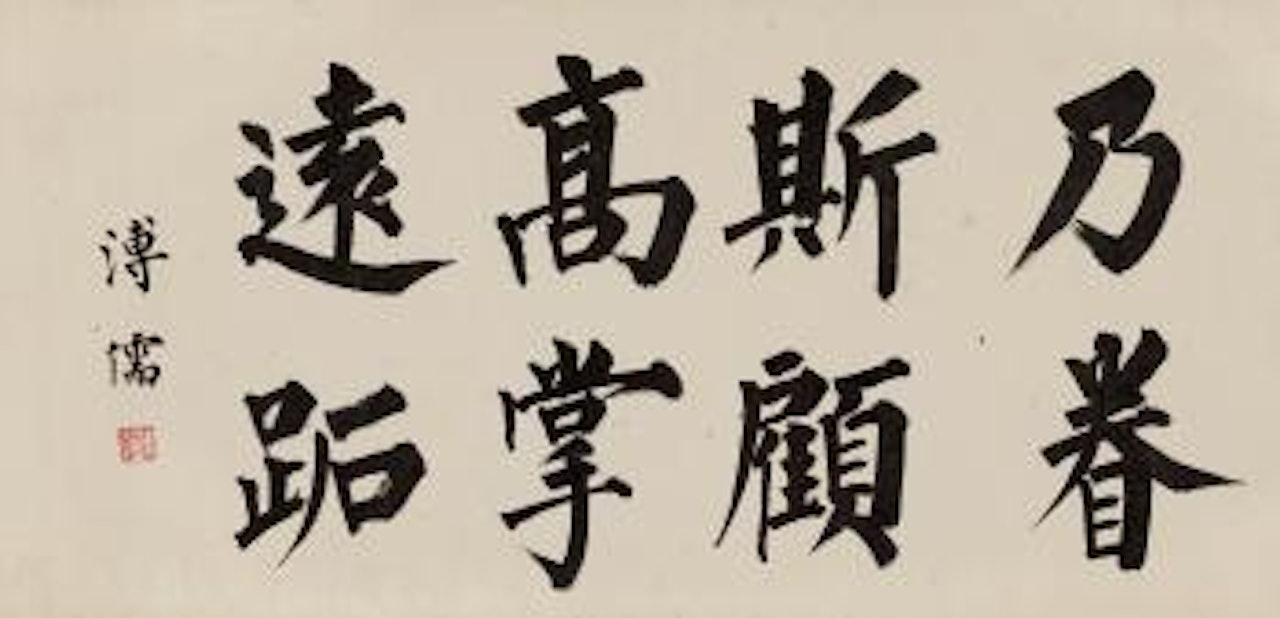 乃眷
斯顧
高掌
遠跖
溥儒